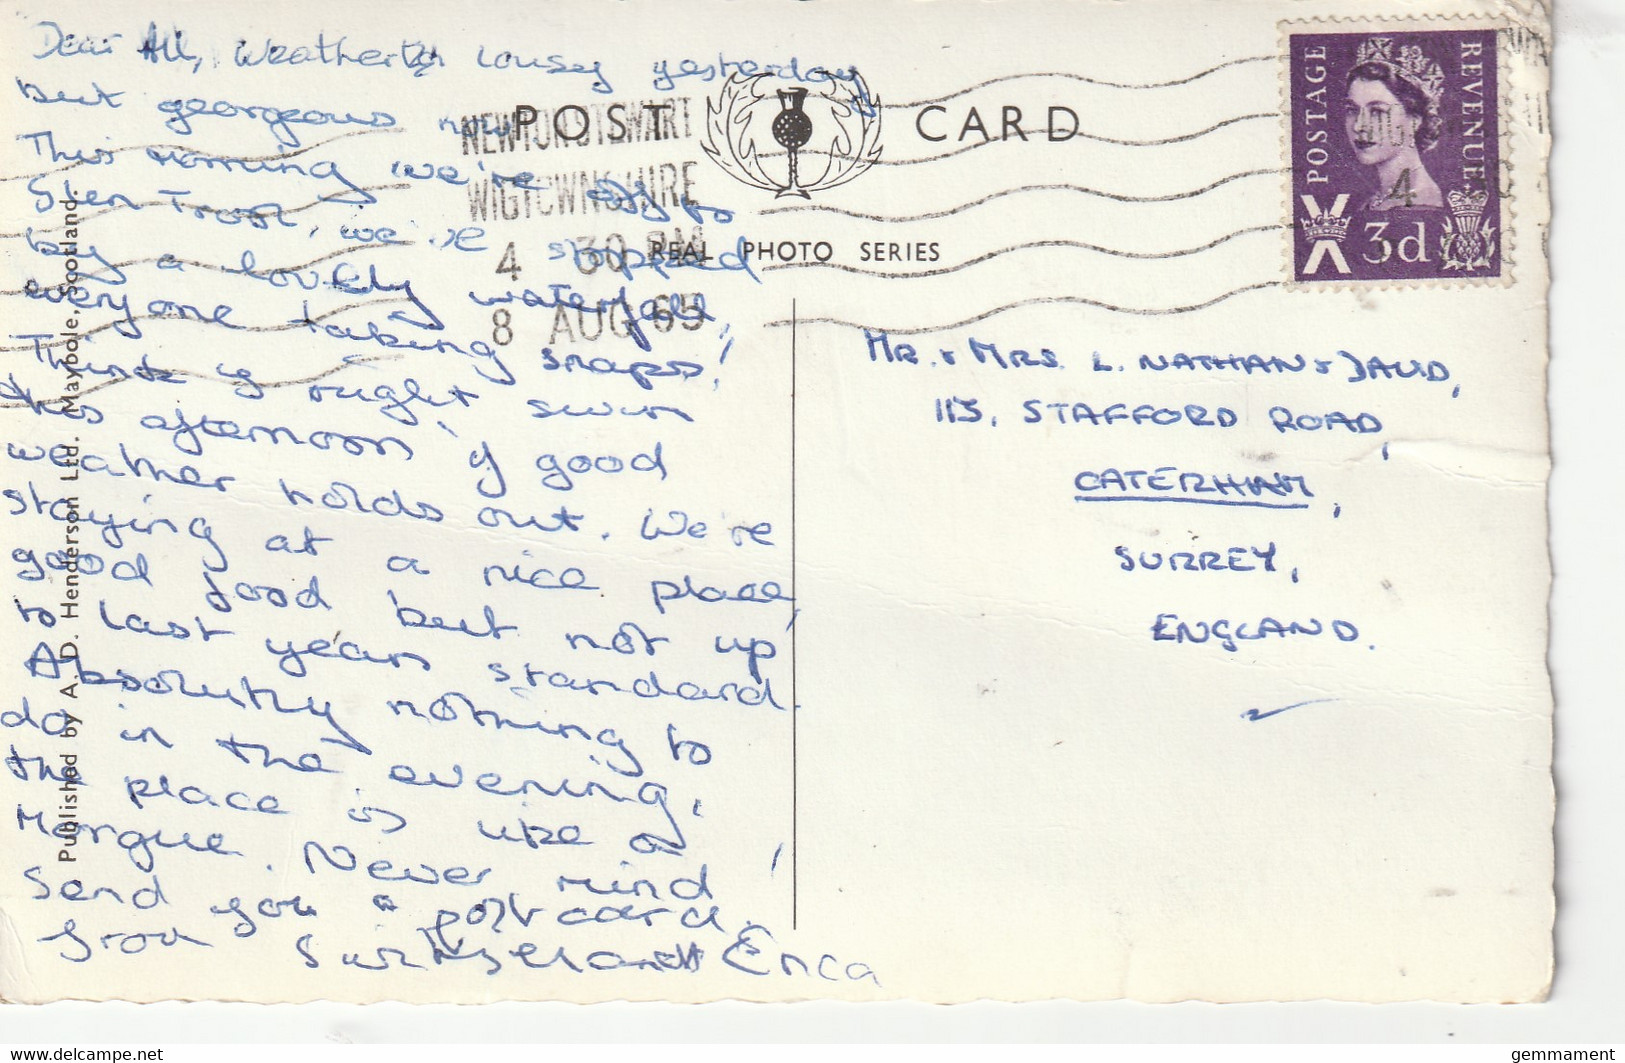 Dear All, Weather lousy yesterday
but georgeous now
This morning we're off to
Glen Trool, we've stopped
by a lovely waterfall,
everyone taking snaps!
Think I might swim
this afternoon if good
weather holds out. We're
staying at a nice place,
good food but not up
to last years standard.
Absolutly nothing to
do in the evening,
the place is like a
Morgue. Never mind,
Send you a postcard
from Erica
POST CARD
REAL PHOTO SERIES
NEWTON STEWART
WIGTOWNSHIRE
4 30 PM
8 AUG 65
POSTAGE
REVENUE
3d
MR. & MRS. L. NATHAN & DAVID,
115, STAFFORD ROAD,
CATERHAM,
SURREY,
ENGLAND.
Published by A. D. Henderson Ltd. Maybole, Scotland.
gemmament